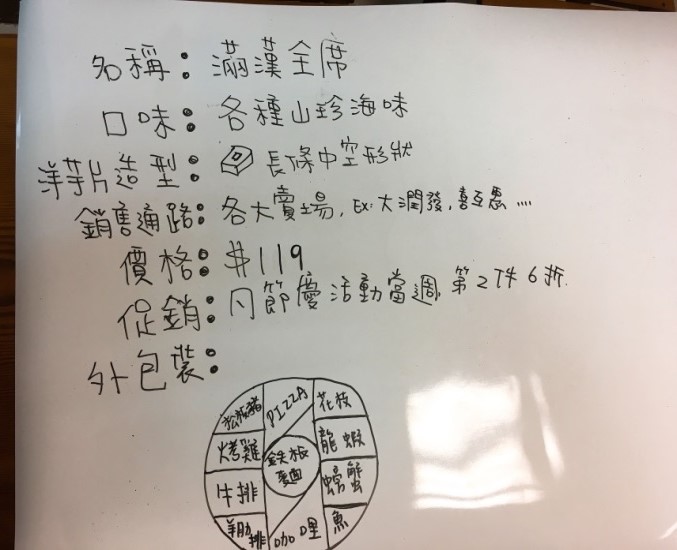 名稱：滿漢全席
口味：各種山珍海味
洋芋片造型：長條中空形狀
銷售通路：各大賣場, EX: 大潤發, 喜互惠....
價格：$119
促銷：凡節慶活動當週, 第2件6折.
外包裝：
松板豬
PIZZA
花枝
烤雞
鉄板麵
龍蝦
牛排
螃蟹
羊肋排
咖哩
魚